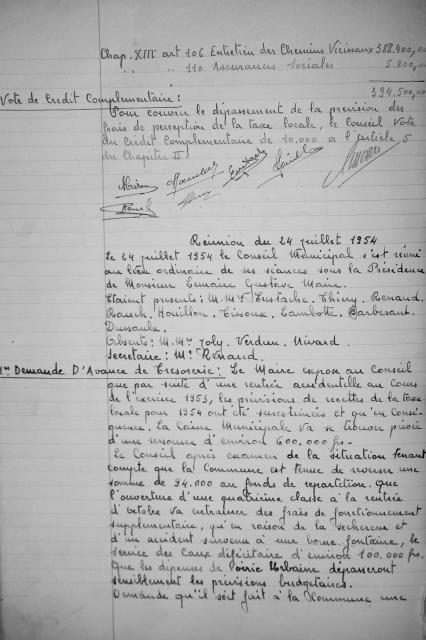 Chap. XIII art 106 Entretien des Chemins Vicinaux 388.400,00
" " " 110 Assurances Sociales 5.800,00
394.500,00
Vote de Credit Complementaire :
Pour couvrir le dépassement de la prevision des
frais de perception de la taxe locale, le Conseil Vote
un Credit Complementaire de 10,000 a l'article 5
du Chapitre II
Réunion du 24 juillet 1954
Le 24 juillet 1954 le Conseil Municipal s'est réuni
au lieu ordinaire de ses séances sous la Présidence
de Monsieur Lemaire Gustave Maire.
Etaient presents : M.Mrs Eustache, Thiery, Renaud,
Rauch, Houillon, Tisoux, Lambotte, Barbesant,
Dussaulx.
Absents : M.Mrs Joly, Verdun, Nivard.
Secretaire : Mr Renaud.
Demande D'Avance de Tresorerie : Le Maire expose au Conseil
que par suite d'une rentrée accidentelle au cours
de l'exercice 1953, les prévisions de recettes de la taxe
locale pour 1954 ont été surestimées et qu'en Consé-
quence, la Caisse Municipale va se trouver privée
d'une ressource d'environ 600,000 frs.
Le Conseil après examen de la situation tenant
compte que la Commune est tenue de reverser une
somme de 94.000 au fonds de repartition. Que
l'ouverture d'une quatrième classe à la rentrée
d'octobre va entraîner des frais de fonctionnement
supplementaire, qu'en raison de la secheresse et
d'un accident survenu à une borne fontaine, le
service des Eaux déficitaire d'environ 100,000 frs.
Que les dépenses de Voirie Urbaine dépasseront
sensiblement les prévisions budgetaires.
Demande qu'il soit fait à la Commune une